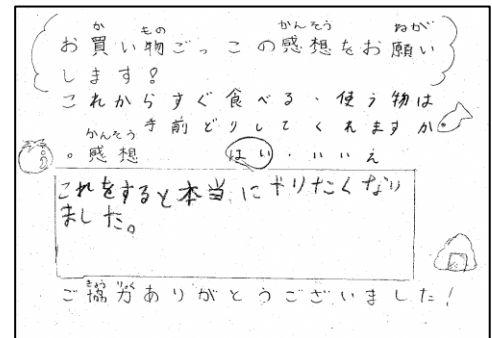 お買い物ごっこの感想をお願い
します?
これからすぐ食べる・使う物は
手前どりしてくれますか
。感想 はい・いいえ
これをすると本当にやりたくなり
ました。
ご協力ありがとうございました!